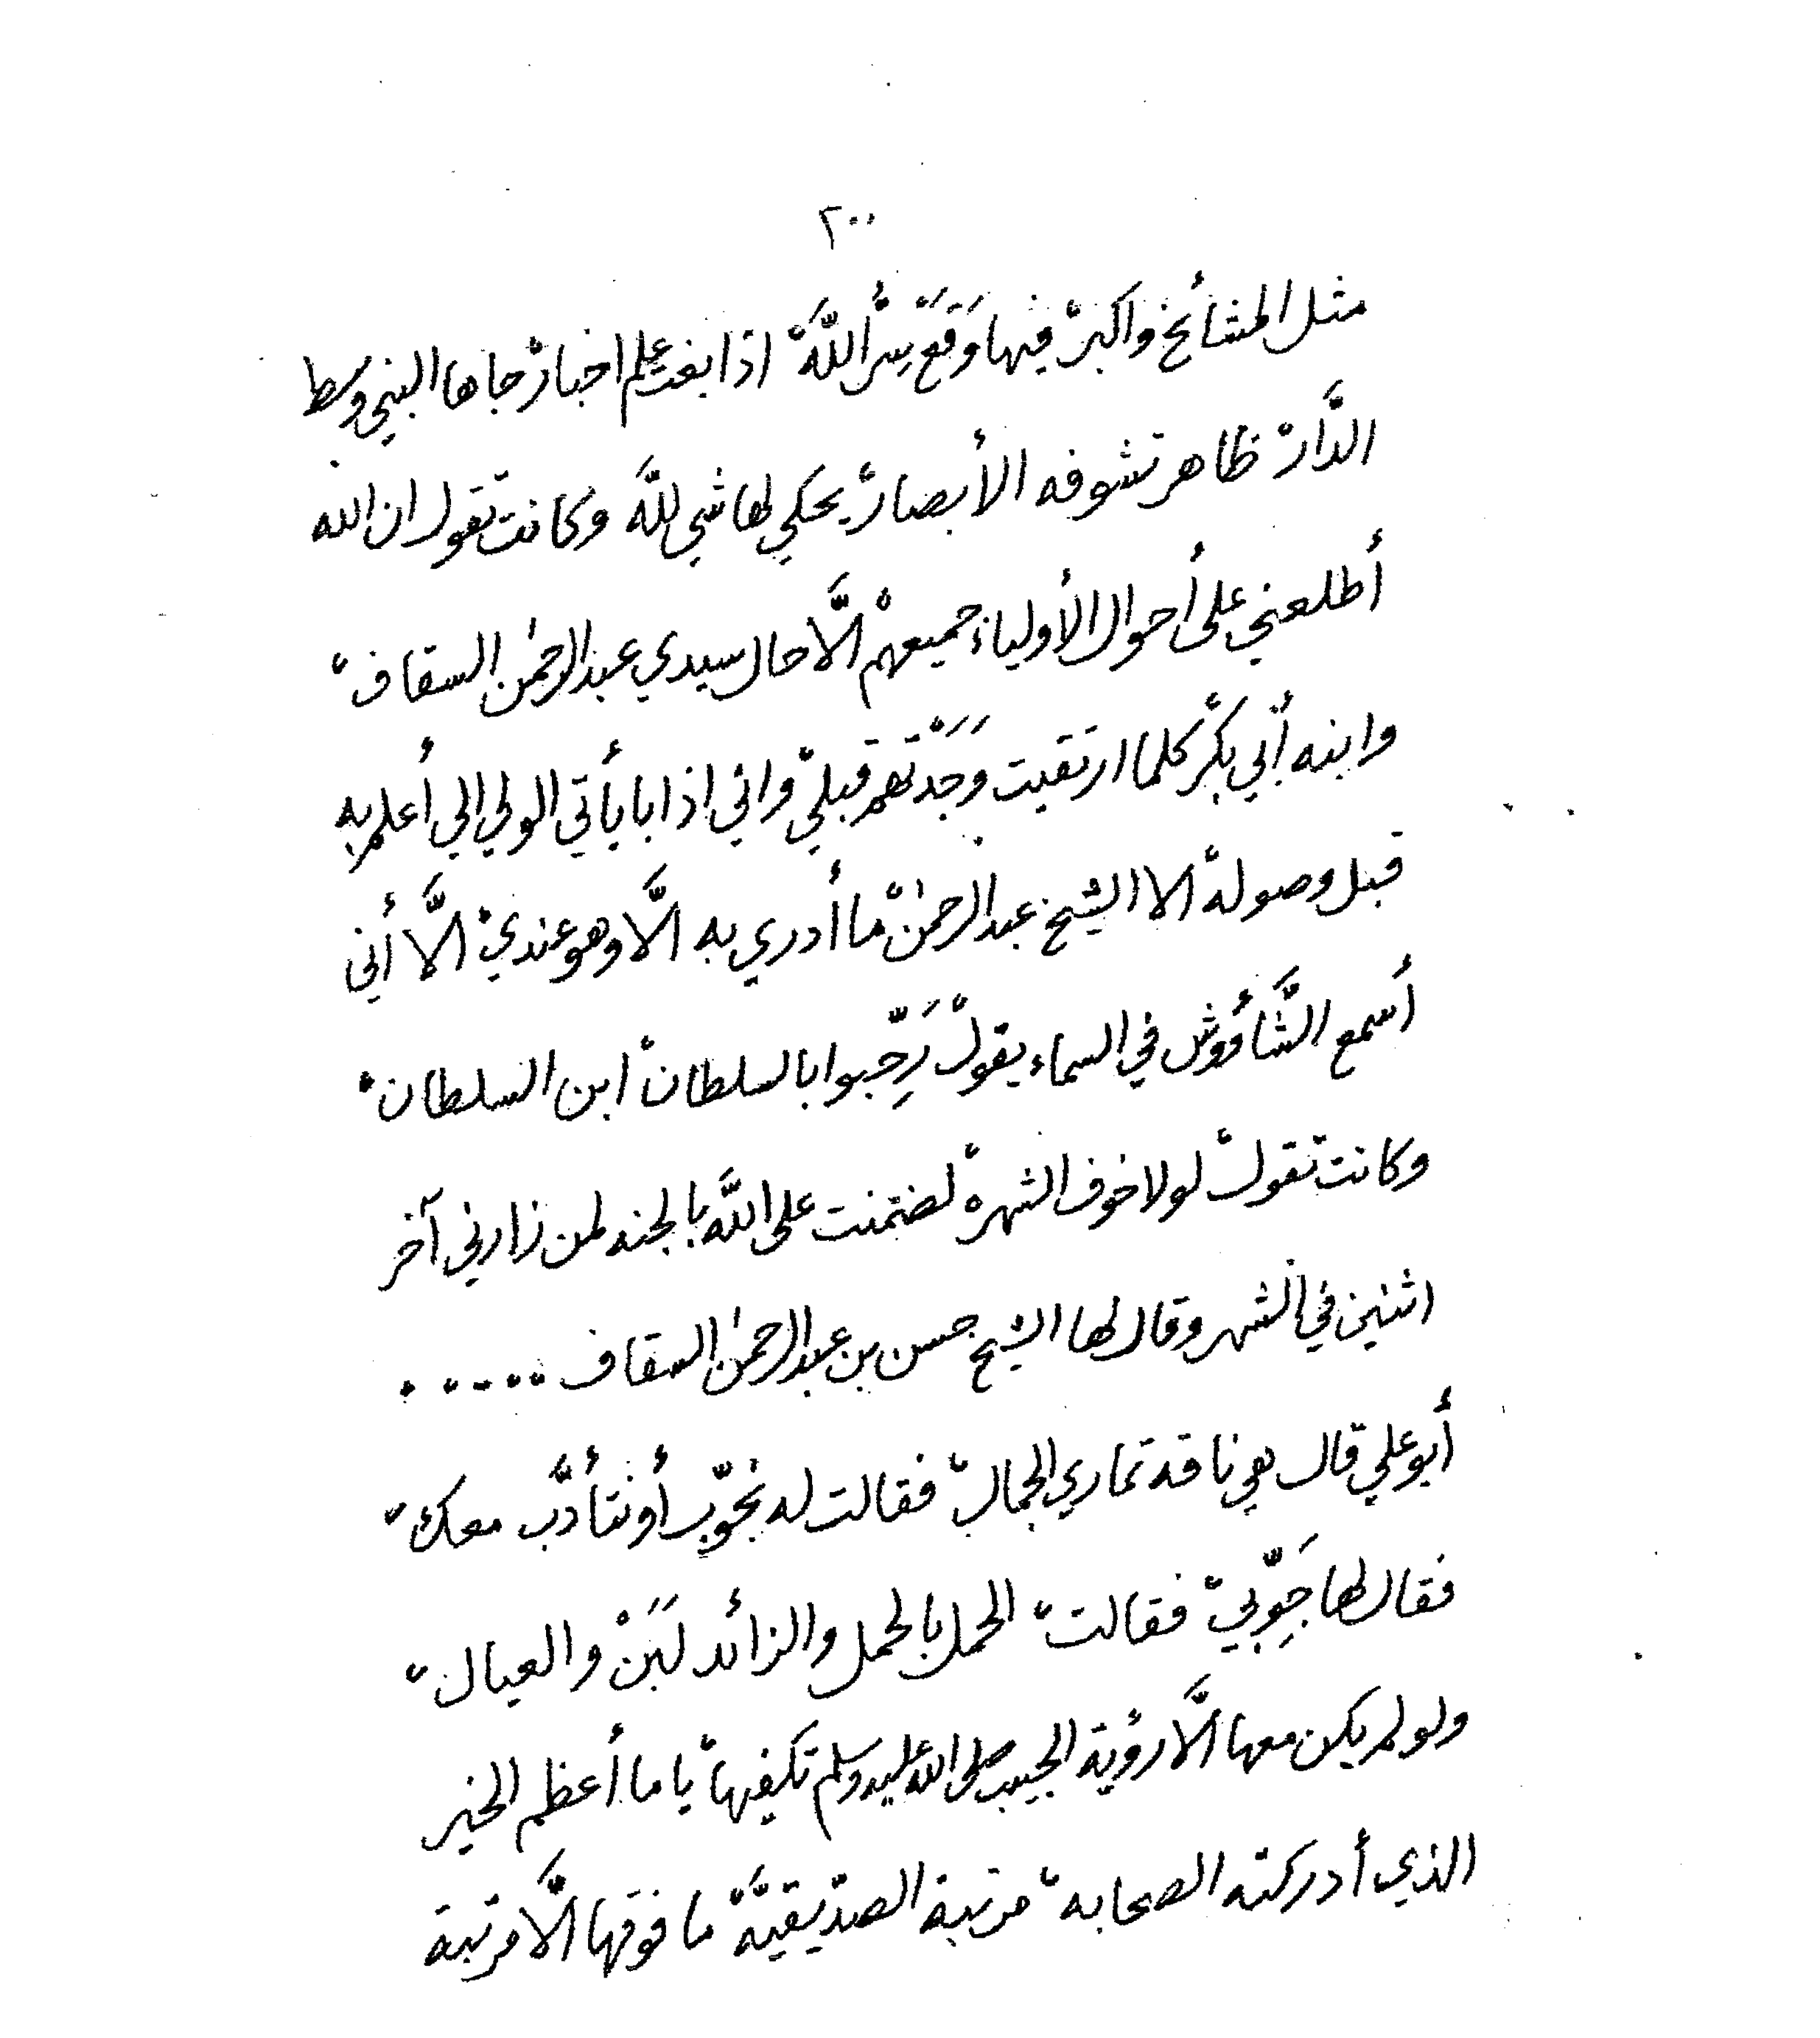 ٢٠٠
مثل المشائخ واكبرْ فيها وَقَعْ سِرْ أللَّهْ اذا بغت علم اخبارْ جاها النبي وسط
الدَّارْ ظاهر تشوفه الأبصارْ يحكي لها شي للَّهْ وكانت تقول ان الله
أطلعني على أحوال الأولياء جميعهمْ الَّا حال سيدي عبدالرحمٰن السقافْ
وابنه أبي بكْر كلما ارتقيت وَجَدْتهم قبليْ واني اذا با يأتي الولي الي أعلم به
قبل وصولهْ الا الشيخ عبدالرحمٰنْ ما أدري به الَّا وهو عنديْ الَّا أني
أسمع الشَّأووش في السماء يقولْ رَحِّبوا بالسلطانْ ابن السلطانْ
وكانت تقولْ لولا خوف الشهرهْ لضمنت على اللَّه بالجنه لمن زارني آخر
اثنين في الشهر وقال لها الشيخ حسن بن عبدالرحمٰن السقاف ......
أبو علي قال هي ناقد تماري الجمالْ فقالت له نجوّب أو نتأدَّب معكْ
فقال لها جَوِّبيْ فقالتْ الحمل بالحمل والزائد لَبَنْ والعيالْ
ولو لم يكن معها الَّا رؤية الحبيب صلى الله عليه وسلم تكفيهاْ يا ما أعظم الخير
الذي أدركته الصحابهْ مرتبة الصدّيقيَّهْ ما فوقها الَّا مرتبة